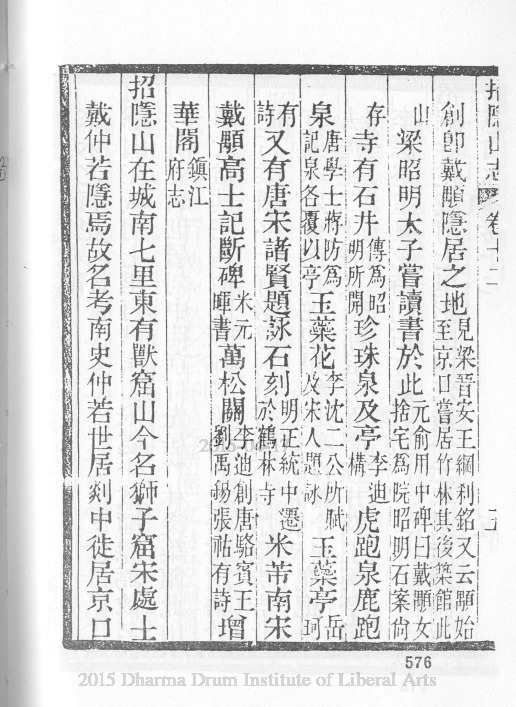 招隱山志 卷十二 五
創卽戴顒隱居之地見梁晉安王綱刹銘又云顒始至京口嘗居竹林其後築館此
山梁昭明太子嘗讀書於此元俞用中碑曰戴顒女捨宅爲院昭明石案尙
存寺有石井傳爲昭明所開珍珠泉及亭李迪構虎跑泉鹿跑
泉唐學士蔣防爲記泉各覆以亭玉蘂花李沈二公所賦及宋人題詠玉蘂亭岳珂
有詩又有唐宋諸賢題詠石刻明正統中遷於鶴林寺米芾南宋
戴顒高士記斷碑米元暉書萬松關李迪創唐駱賓王劉禹錫張祜有詩增
華閣鎭江府志
招隱山在城南七里東有獸窟山今名獅子窟宋處士
戴仲若隱焉故名考南史仲若世居剡中徙居京口
576
2015 Dharma Drum Institute of Liberal Arts